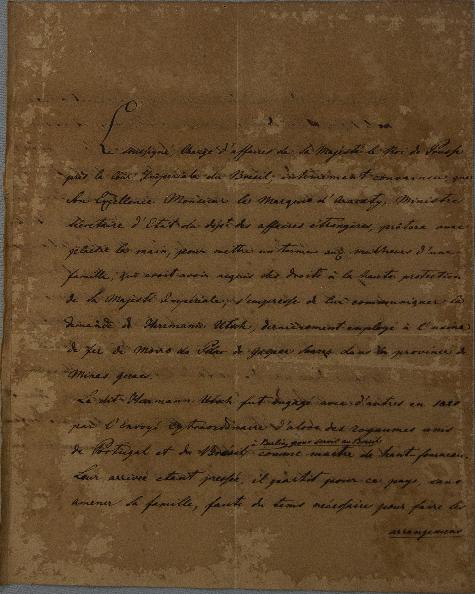 Le soussigné Chargé d'affaires de Sa Majesté le Roi de Prusse
près la Cour Impériale du Brésil, intimément convaincu que
Son Excellence Monsieur le Marquis d'Aracaty, Ministre
Secrétaire d'Etat du dépt des affaires étrangères, prêtera une
la main, pour mettre un terme aux malheurs d'une
famille, qui croit avoir acquis des droits à la haute protection
de Sa Majesté Impériale, s'empresse de Lui communiquer la
demande de Herrmann Utsch, dernièrement employé à l'usine
de fer de Morro do Pilar de Gaspar Soares dans la province de
Minas geraes.
Le dit Harmann Utsch fut engagé avec d'autres en
par l'Envoyé extraordinaire d'alors des royaumes unis
à Berlin pour servir au Brésil
de Portugal et du Brésil comme maitre de haut fourneau.
Leur arrivée étant pressée, il partit pour ce pays, sans
amener sa famille, faute du tems nécessaire pour faire les
arrangemens